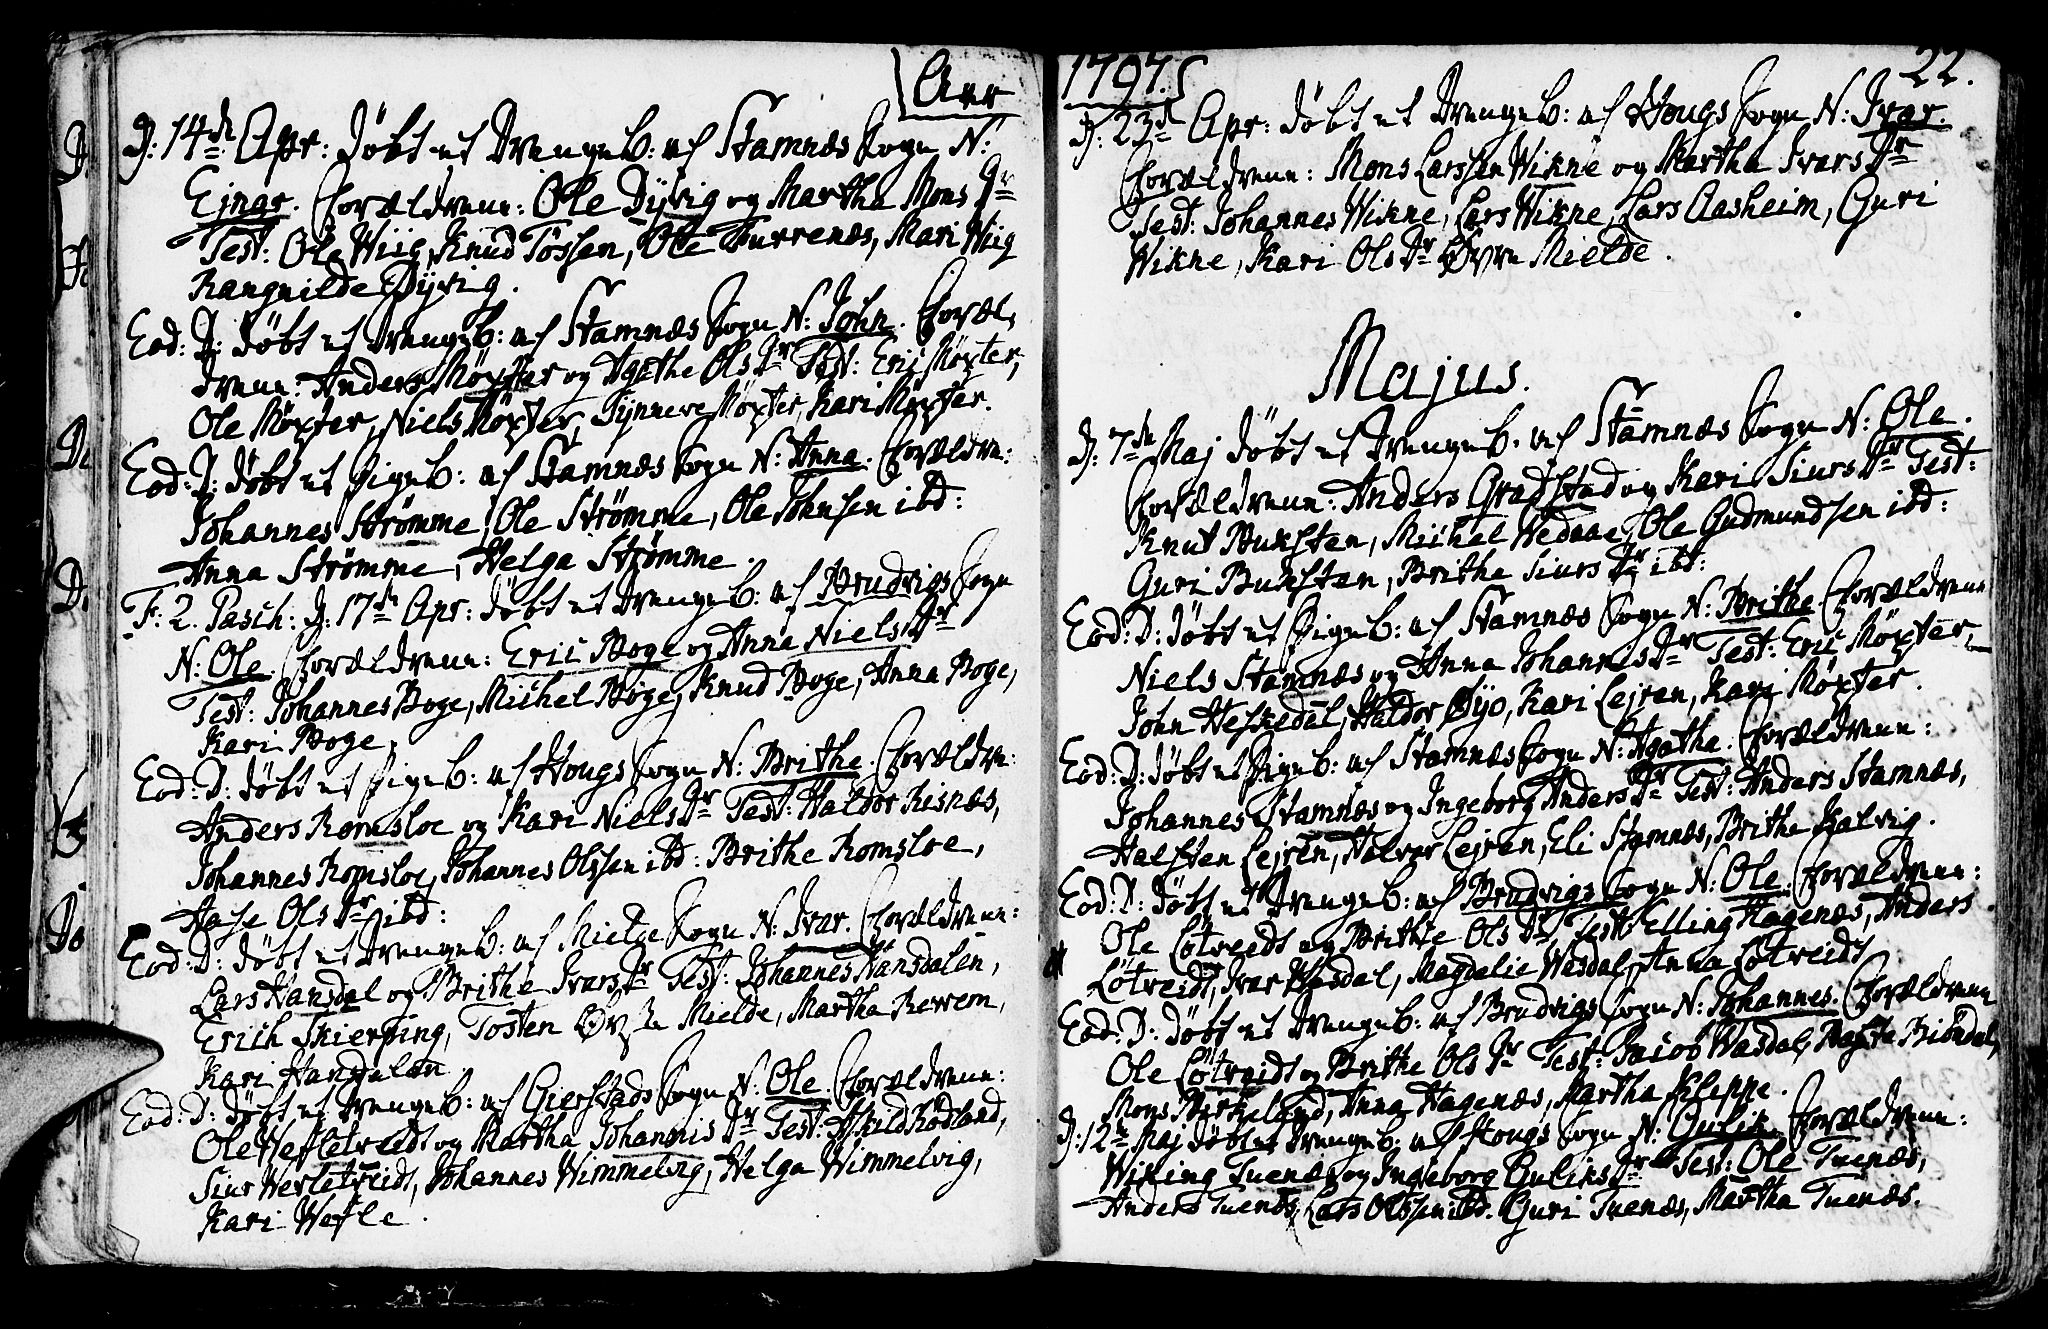 Ann
D: 14de Apr: døbt et Drengeb: af Stamnæs Sogn N:
Ejnar. Forældrene: Ole Dyvig og Martha Mons Dr
Test: Ole Wiig, Knud Tössen, Ole Furrenæs, Mari Wiig
Rangnilde Dyvig.
Eod: D: døbt et Drengeb: af Stamnæs Sogn N: John. Foræl,,
drene: Anders Møxter og Agathe Ols Dr Test: Eric Møxter,
Ole Møxter, Niels Møxter, Synneve Møxter, Kari Møxter.
Eod: D: døbt et Pigeb: af Stamnæs Sogn N: Anna. Forældre:
Johannes Strømme, Ole Strømme, Ole Johnsen ibd:
Anna Strømme, Helga Strømme.
F: 2. Pasch: D: 17de Apr: døbt et Drengeb: af Brudvigs Sogn
N: Ole. Forældrene: Eric Boge og Anna Niels Dr
Test: Johannes Boge, Michel Boge, Knud Boge, Anna Boge,
Kari Boge,
Eod: D: døbt et Pigeb: af Hougs Sogn N: Brithe. Forældre:
Anders Romsloe og Kari Niels Dr Test: Haldor Risnæs,
Johannes Romsloe, Johannes Olssen ibd: Brithe Romsloe,
Aase Ols Dr ibd:
Eod: D: døbt et Drengeb: af Mielde Sogn N: Ivar. Forældrene:
Lars Hansdal og Brithe Ivars Dr Test: Johannes Hansdalen,
Erich Skierping, Tosten Øvre Mielde, Martha Rewem,
Kari Hansdalen
Eod: D: døbt et Drengeb: af Gierstads Sogn N: Ole. Forældrene:
Ole Wefletveidt og Martha Johannis Dr Test: Askild Rødland,
Siur Wefletveidt, Johannes Wimmelvig, Helga Wimmelvig,
Kari Wefle.
1797.
22.
D: 23de Apr: døbt et Drengeb: af Hougs Sogn N: Ivar.
Forældrene: Mons Larssen Wikne og Martha Ivars Dr
Test: Johannes Wikne, Lars Wikne, Lars Aasheim, Guri
Wikne, Kari Ols Dr Øvre Mielde.
Majus.
D: 7de Maj døbt et Drengeb: af Stamnæs Sogn N: Ole.
Forældrene: Anders Gradstad og Kari Siurs Dr Test:
Knut Buksten, Michel Wedaae, Ole Gudmundsen ibd:
Guri Buksten, Brithe Siurs Dr ibd:
Eod: D: døbt et Pigeb: af Stamnæs Sogn N: Brithe Forældrene
Niels Stamnæs og Anna Johannis Dr Test: Eric Møxter,
John Heskedal, Haldor Øyo, Kari Lejren, Kari Møxter.
Eod: D: døbt et Pigeb: af Stamnæs Sogn N: Agatha. Forældrene:
Johannes Stamnæs og Ingeborg Anders Dr Test: Anders Stamnæs,
Halsten Lejren, Halvor Lejren, Eli Stamnæs, Brithe Kalvig.
Eod: D: døbt et Drengeb: af Brudvigs Sogn N: Ole. Forældrene:
Ole Løtveidt og Brithe Ols Dr Test: Elling Hagenæs, Anders
Løtveidt, Ivar Wasdal, Magdelie Wasdal, Anna Løtveidt
Eod: D: døbt et Drengeb: af Brudvigs Sogn N: Johannes. Forældrene
Ole Løtveidt og Brithe Ols Dr Test: Jacob Wasdal, Biöndal,
Mons Birkeland, Anna Hagenæs, Martha Kleppe.
D: 12te Maj døbt et Drengeb: af Hougs Sogn N: Gulik Forældrene:
Wiking Tuenæs og Ingeborg Guliks Dr Test: Ole Tuenæs,
Anders Tuenæs, Lars Olssen ibd. Guri Tuenæs, Martha Tuenæs.